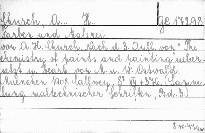 Church, A. H. Ge 17392
Farben und Malerei
von A. H. Church. Nach d. 3. Aufl. von "The
chemistry of paints and painting" über-
setzt u. bearb. von M. u. W. Ostwald.
München: Callwey, VI 374. (Samm-
lung maltechnischer Schriften, Bd. 3)